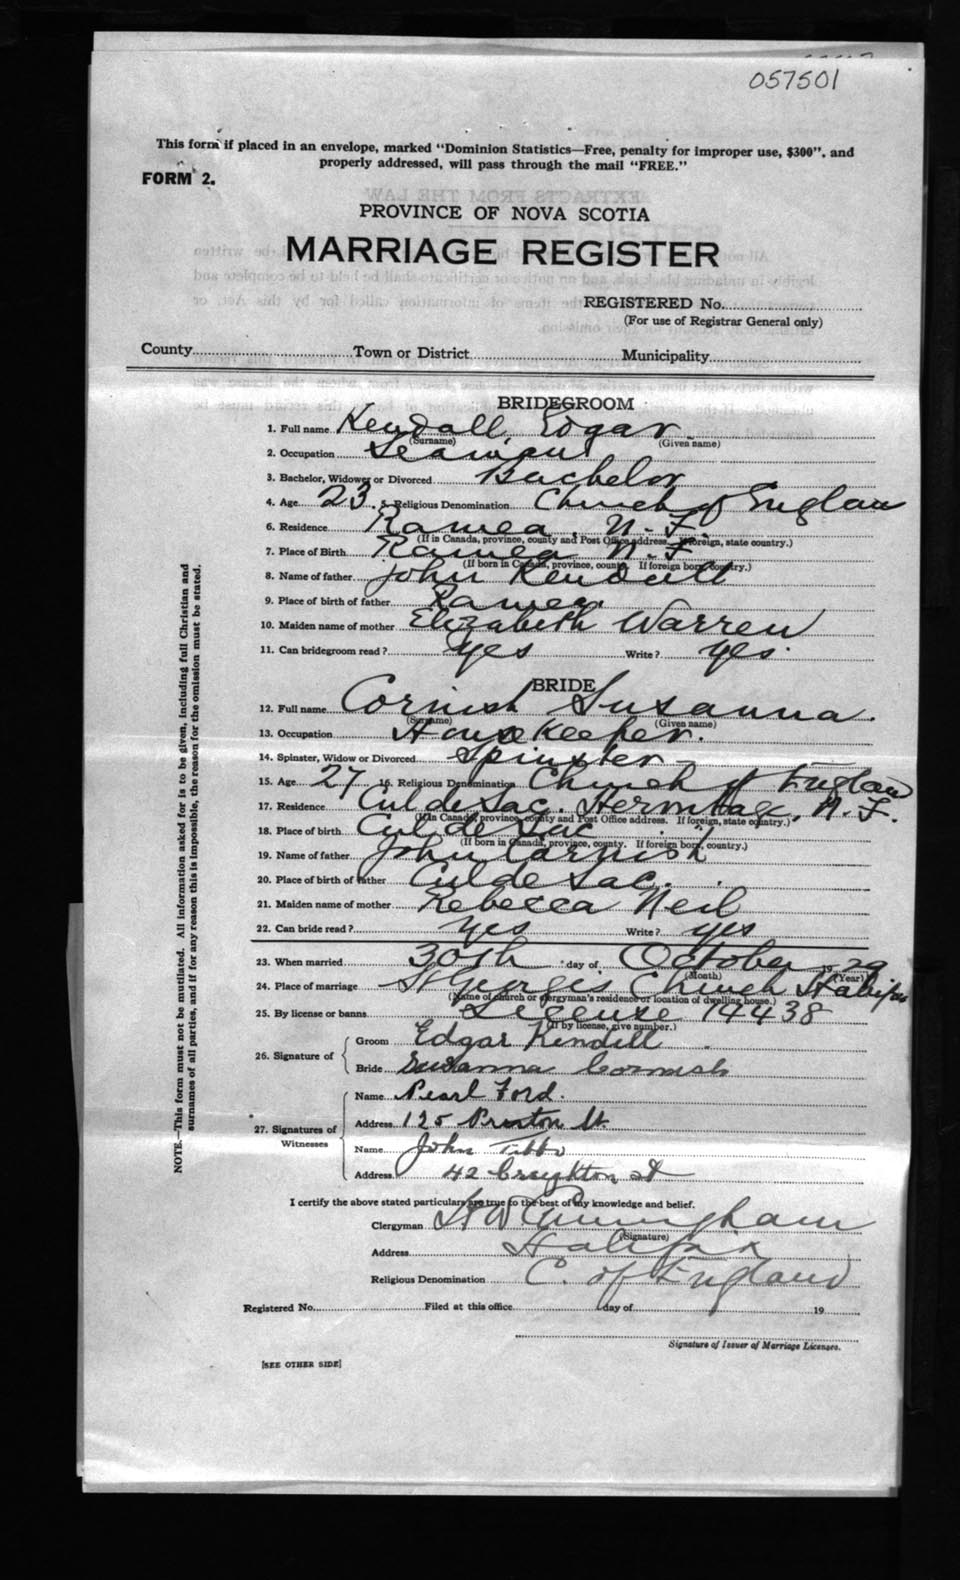 057501
This form if placed in an envelope, marked "Dominion Statistics—Free, penalty for improper use, $300", and
properly addressed, will pass through the mail "FREE."
FORM 2.
PROVINCE OF NOVA SCOTIA
MARRIAGE REGISTER
REGISTERED No.
(For use of Registrar General only)
County Town or District Municipality
BRIDEGROOM
1. Full name Kendall, Edgar
(Surname) (Given name)
2. Occupation Seaman
3. Bachelor, Widower or Divorced Bachelor
4. Age 23 5. Religious Denomination Church of England
6. Residence Ramea, N.F.
(If in Canada, province, county and Post Office address. If foreign, state country.)
7. Place of Birth Ramea N.F.
(If born in Canada, province, county. If foreign born, country.)
8. Name of father John Kendall
9. Place of birth of father Ramea
10. Maiden name of mother Elizabeth Warren
11. Can bridegroom read? Yes Write? yes.
BRIDE
12. Full name Cornish Susanna.
(Surname) (Given name)
13. Occupation House Keeper.
14. Spinster, Widow or Divorced Spinster
15. Age 27 16. Religious Denomination Church of England
17. Residence Cul de Sac. Hermitage, N.F.
(If in Canada, province, county and Post Office address. If foreign, state country.)
18. Place of birth Cul de Sac
(If born in Canada, province, county. If foreign born, country.)
19. Name of father John Cornish
20. Place of birth of father Cul de Sac.
21. Maiden name of mother Rebecca Neil
22. Can bride read? Yes Write? yes
23. When married 30th day of October 19 29
(Month) (Year)
24. Place of marriage St Georges Church Halifax
(Name of church or clergyman's residence or location of dwelling house.)
25. By license or banns License 14438
(If by license, give number.)
26. Signature of
Groom Edgar Kendall
Bride Susanna Cornish
27. Signatures of
Witnesses
Name Pearl Ford.
Address 125 Preston St.
Name John Tibbo
Address 42 Creighton St
I certify the above stated particulars are true to the best of my knowledge and belief.
Clergyman H W Cunningham
(Signature)
Address Halifax
Religious Denomination C. of England
Registered No. Filed at this office day of 19
Signature of Issuer of Marriage Licenses.
[SEE OTHER SIDE]
NOTE.—This form must not be mutilated. All information asked for is to be given, including full Christian and
surnames of all parties, and if for any reason this is impossible, the reason for the omission must be stated.